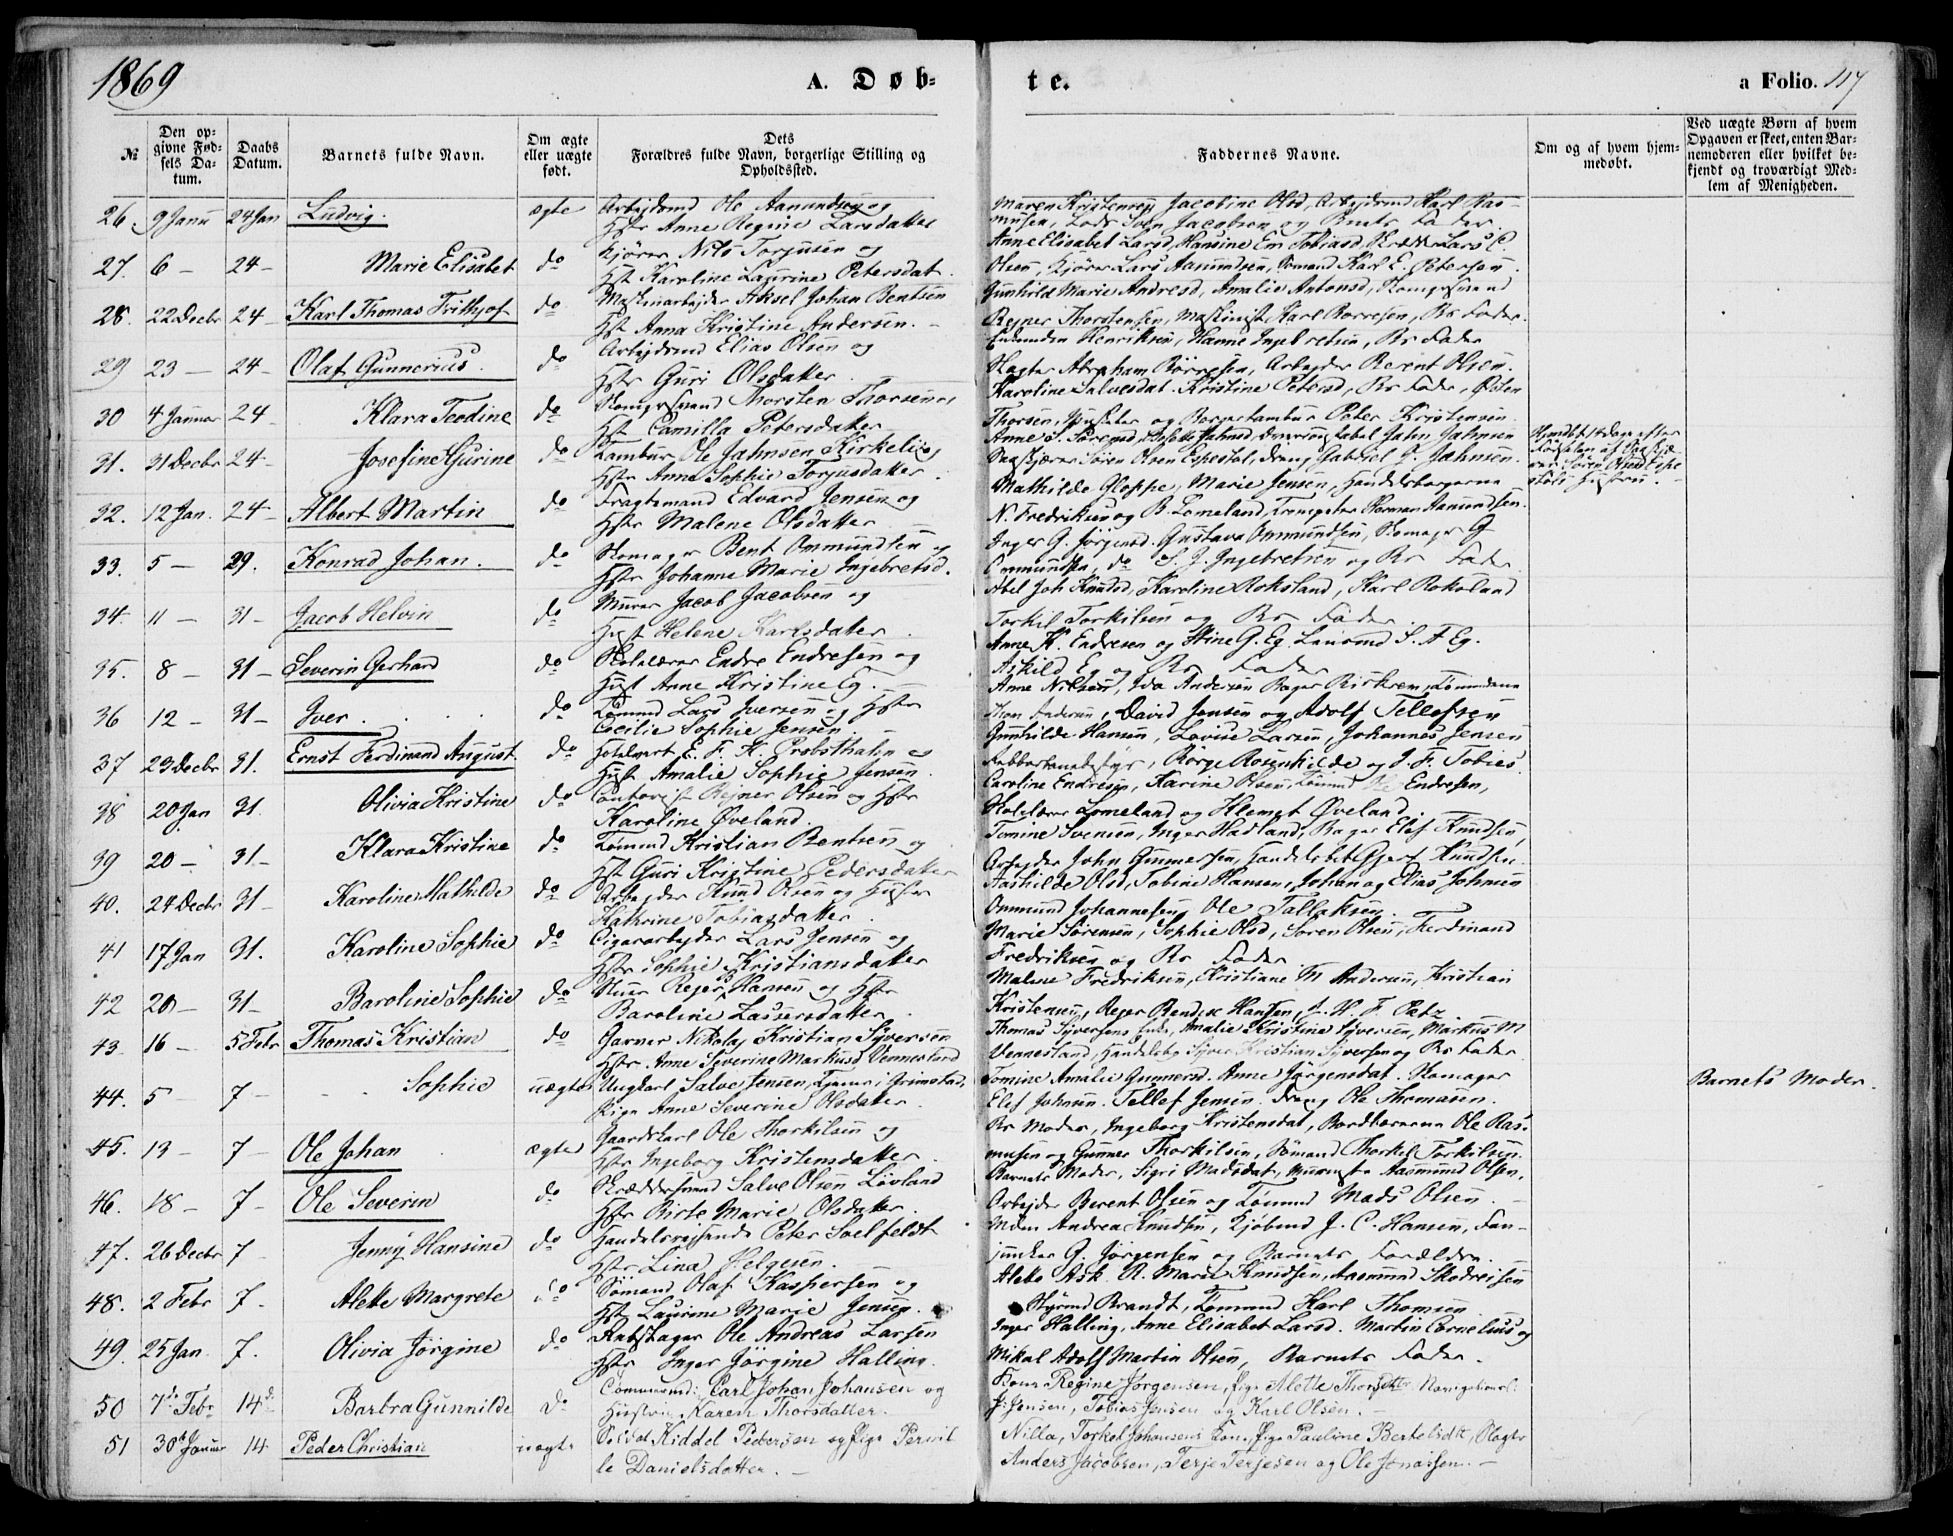 1869
A. Døb-
te.
a Folio. 117
№
Den op-
givne Fød-
sels Da-
tum.
Daabs
Datum.
Barnets fulde Navn.
Om ægte
eller uægte
født.
Dets
Forældres fulde Navn, borgerlige Stilling og
Opholdssted.
Faddernes Navne.
Om og af hvem hjem-
medøbt.
Ved uægte Børn af hvem
Opgaven er skeet, enten Bar-
nemoderen eller hvilket be-
kjendt og troværdigt Med-
lem af Menigheden.
26 9 Janu 24 Jan Ludvig. ægte Arbejdsmd Ole Aanundsen og
Hstr Anne Regine Larsdatter
Maren Kristensen, Jacobine Olsd, Arbejdsmd Karl Ras-
musen, Lods Jacobsen og Barnets Fader
27. 6 — 24 — Marie Elisabet do Kjører Nils Torjusen og
Hst Karoline Laurine Petersdat.
Anne Elisabet Larsd, Hansine Em Tobiasd, Lars C.
Olsen, Kjører Lars Aanundsen, Sømand Karl E. Petersen.
28. 22 Decbr 24 — Karl Thomas Frithjof do Maskinarbejder Aksel Johan Bentsen
Hst Anna Kristine Andersen. —
Gunhilde Marie Andresd, Amalie Antonsd,
Rejner Thorstensen, Maskinist Karl Børresen, Br Fader.
29 23 — 24 — Olaf Gunnerius. do Arbejdsmd Elias Olsen og
Hstr Guri Olsdatter.
Henriksen, Hanne Ingebretsen, Br Fader
Slagter Abraham Børresen, Arbejder Berent Olsen.
30 4 Januar 24 Klara Teodine do Thorsten Thorsen og
Hst Camilla Petersdatter
Karoline Salvesdat. Kristine Petersd, Br Fader, Østen
Thorsen, og Peter Kristensen
31. 31 Decbr 24 — Josefine Sjurine do Tambur Ole Jahnsen Kirkelie og
Hstr Anna Sophie Torjusdatter.
Anne S. Sørensd, Jahnsd, Jahn Jahnsen
Søren Olsen Espestøl, Dreng Gabriel J. Jahnsen.
32. 12 Jan. 24 — Albert Martin do Fragtemand Edvard Jensen og
Hstr Malene Olsdatter
Mathilde Gloppe, Marie Jensen, Handelsborgerne
N. Fredriksen og B. Lomeland, Trompeter Herman Aanundsen.
33. 5 — 29. Konrad Johan. do Skomager Bent Ommundsen og
Hstr Johanne Marie Ingebretsd.
Inger G. Jørgensd. Gustava Ommundsen, Skomager G
Ommundsen, do S. J. Ingebretsen og Br Fader
34. 11 — 31 — Jacob Helvin do Murer Jacob Jacobsen og
Hust Helene Karlsdatter.
Abel Joh Knudsd, Karoline Roksland, Karl Roksland
Torkil Torkilsen og Br Fader.
35. 8 — 31 — Severin Gerhard do Skolelærer Endre Endresen og
Hust Anne Kristine Eg. —
Anne K. Endresen og Stine G. Eg. S. A Eg.
Askild Eg og Br Fader
36 12 — 31 — Iver. do Tømmd Lars Iversen og Hstr
Cecilie Sophie Jensen
Anne Nielsen, Ida Andersen Bager Birkrem, Tømmdene
Thom Andersen, David Jensen og Adolf Tellefsen
37 23 Decbr 31. Ernst Ferdinand August do E. F. H. Probsthahn og
Hust Amalie Sophie Jensen.
Gunhilde Hansen, Lovise Larsen, Johannes Jensen
Børge Rosenkilde og J. F. Tobies.
38 20 Jan 31. Olivia Kristine do Contorist Rejner Olsen og Hstr
Karoline Øveland.
Caroline Endresen, Karine Olsen, Tømmd Ole Endresen,
Skolelærer Lomeland og Klemet Øveland.
39 20 — 31 — Klara Kristine do Tømmd Kristian Bentsen og
Hst Guri Kristine Pedersdatter
Tomine Svensen, Inger Hadland, Bager Elef Knudsen,
Arbejder John Gunnersen, Handelsbet Gjert Knudsen.
40. 24 Decbr 31 — Karoline Mathilde do Arbejder Knud Olsen og Hustr
Kathrine Tobiasdatter.
Aashilde Olsd, Tobine Hansen, Johan og Elias Johnsen
Ommund Johannesen, Ole Tallaksen.
41 17 Jan 31. Karoline Sophie do Cigararbejder Lars Jensen og
Hstr Sophie Kristiansdatter
Marie Sørensen, Sophie Olsd, Søren Olsen, Ferdinand
Fredriksen og Br Fader
42 20 — 31 — Baroline Sophie do Rejer B Hansen og Hstr
Baroline Lassesdatter.
Malene Fredriksen, Kristiane M Andersen, Kristian
Kristensen, Rejer Bendix Hansen, J. H. F. Patz
43 16 — 5 Febr Thomas Kristian do Garver Nikolaj Kristian Syversen
Hstr. Anne Severine Markusd Vennesland
Thomas Syversens Enke, Amalie Kristine Syversen, Markus M
Vennesland, Handelsbg Syver Kristian Syversen og Br Fader
44. 5 — 7 — Sophie uægte Ungkarl Salve Jensen, Tjener i Grimstad,
Pige Anne Severine Olsdatter.
Tomine Amalie Gunnersd. Anne Jørgensdat. Skomager
Elef Johnsen. Tellef Jensen. Dreng Ole Thomasen.
Barnets Moder.
45. 13 — 7 — Ole Johan ægte Gaardskarl Ole Thorkilsen og
Hstr Ingeborg Kristensdatter.
Br Moder, Ingeborg Kristensdat, Ole Ras-
musen og Gunner Thorkilsen, Sømand Thorkel Torkilsen.
46. 18 — 7 — Ole Severin do Skræddersvend Salve Olsen Løvland
Hstr Birte Marie Olsdatter.
Barnets Moder, Sigri Madsdat, Aasmund Olsen,
Arbejder Berent Olsen og Tømmd Mads Olsen. —
47. 26 Decbr 7 — Jenny Hansine do Handelsrejsende Peter Soelfeldt
Hstr Lina Helgesen.
Mden Andrea Knudsen, Kjøbmd J. C. Hansen, Fan-
junker G. Jørgensen og Barnets Forældre.
48. 2 Febr 7. Alette Margrete do Sømand Olaf Kaspersen og
Hst Laurine Marie Jensen.
Alette Ask. R. Marie Knudsen, Aasmund Skodvisen
Styrmd Brandt, Tømmd Karl Thomsen
49. 25 Jan. 7. Olivia Jörgine do Ole Andreas Larsen
Hstr Inger Jörgine Halling.
Inger Halling, Anne Elisabet Larsd. Martin Cornelius og
Mikal Adolf Martin Olsen, Barnets Fader.
50 7de Febr 14d Barbra Gunnilde do Tømmermd: Carl Johan Johansen og
Hustru Karen Thorsdatter.
Kone Regine Jørgensen, Pige Alette Thorsdtr
J: Jensen, Tobias Jensen og Karl Olsen. —
51 30te Januar 14 Peder Christian uægte Soldat Kiddel Pedersen og Pige Pernil
le Danielsdatter. —
Nilla, Torkel Johansens Kone, Pige Pauline Bertelsdtr, Slagter
Anders Jacobsen, Terje Terjesen og Ole Jonassen. —